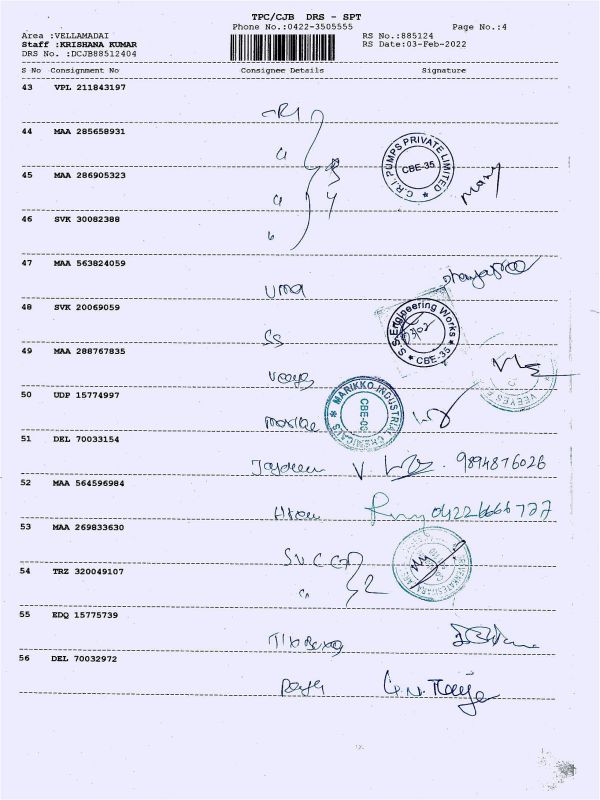 TPC/CJB DRS - SPT
Phone No.:0422-3505555 Page No.:4
Area :VELLAMADAI RS No.:885124
Staff :KRISHANA KUMAR RS Date:03-Feb-2022
DRS No. :DCJB88512404
S No Consignment No Consignee Details Signature
43 VPL 211843197
CRI
44 MAA 285658931
C.R.I. PUMPS PRIVATE LIMITED
CBE-35
45 MAA 286905323
46 SVK 30082388
47 MAA 563824059
Uma
48 SVK 20069059
SS
S.S. Engineering Works
CBE-35
49 MAA 288767835
Veeyes
VEEYES
50 UDP 15774997
MARIKKO INDUSTRIAL CHEMICALS
51 DEL 70033154
9894876026
52 MAA 564596984
04226666777
53 MAA 269833630
54 TRZ 320049107
55 EDQ 15775739
56 DEL 70032972